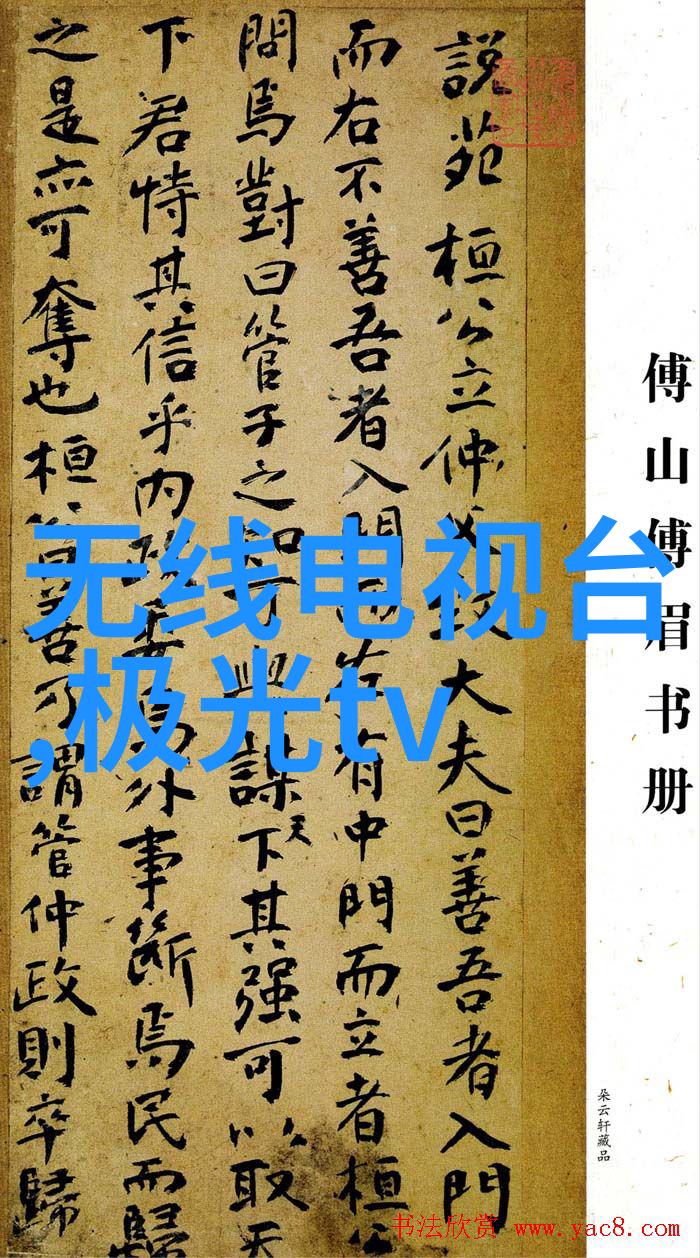 傅山傅眉书册
朵云轩藏品
說苑 桓公立仲父致大夫曰善吾者入門
而右不善吾者入門而左有中門而立者桓公
問焉對曰管子之知可與謀天下其强可以取天
下君恃其信乎内政委焉外事斷焉民而歸
之是亦可奪也桓公曰善乃謂管仲政則卒歸
无线电视台
,极光tv
书法欣赏 www.yac8.com